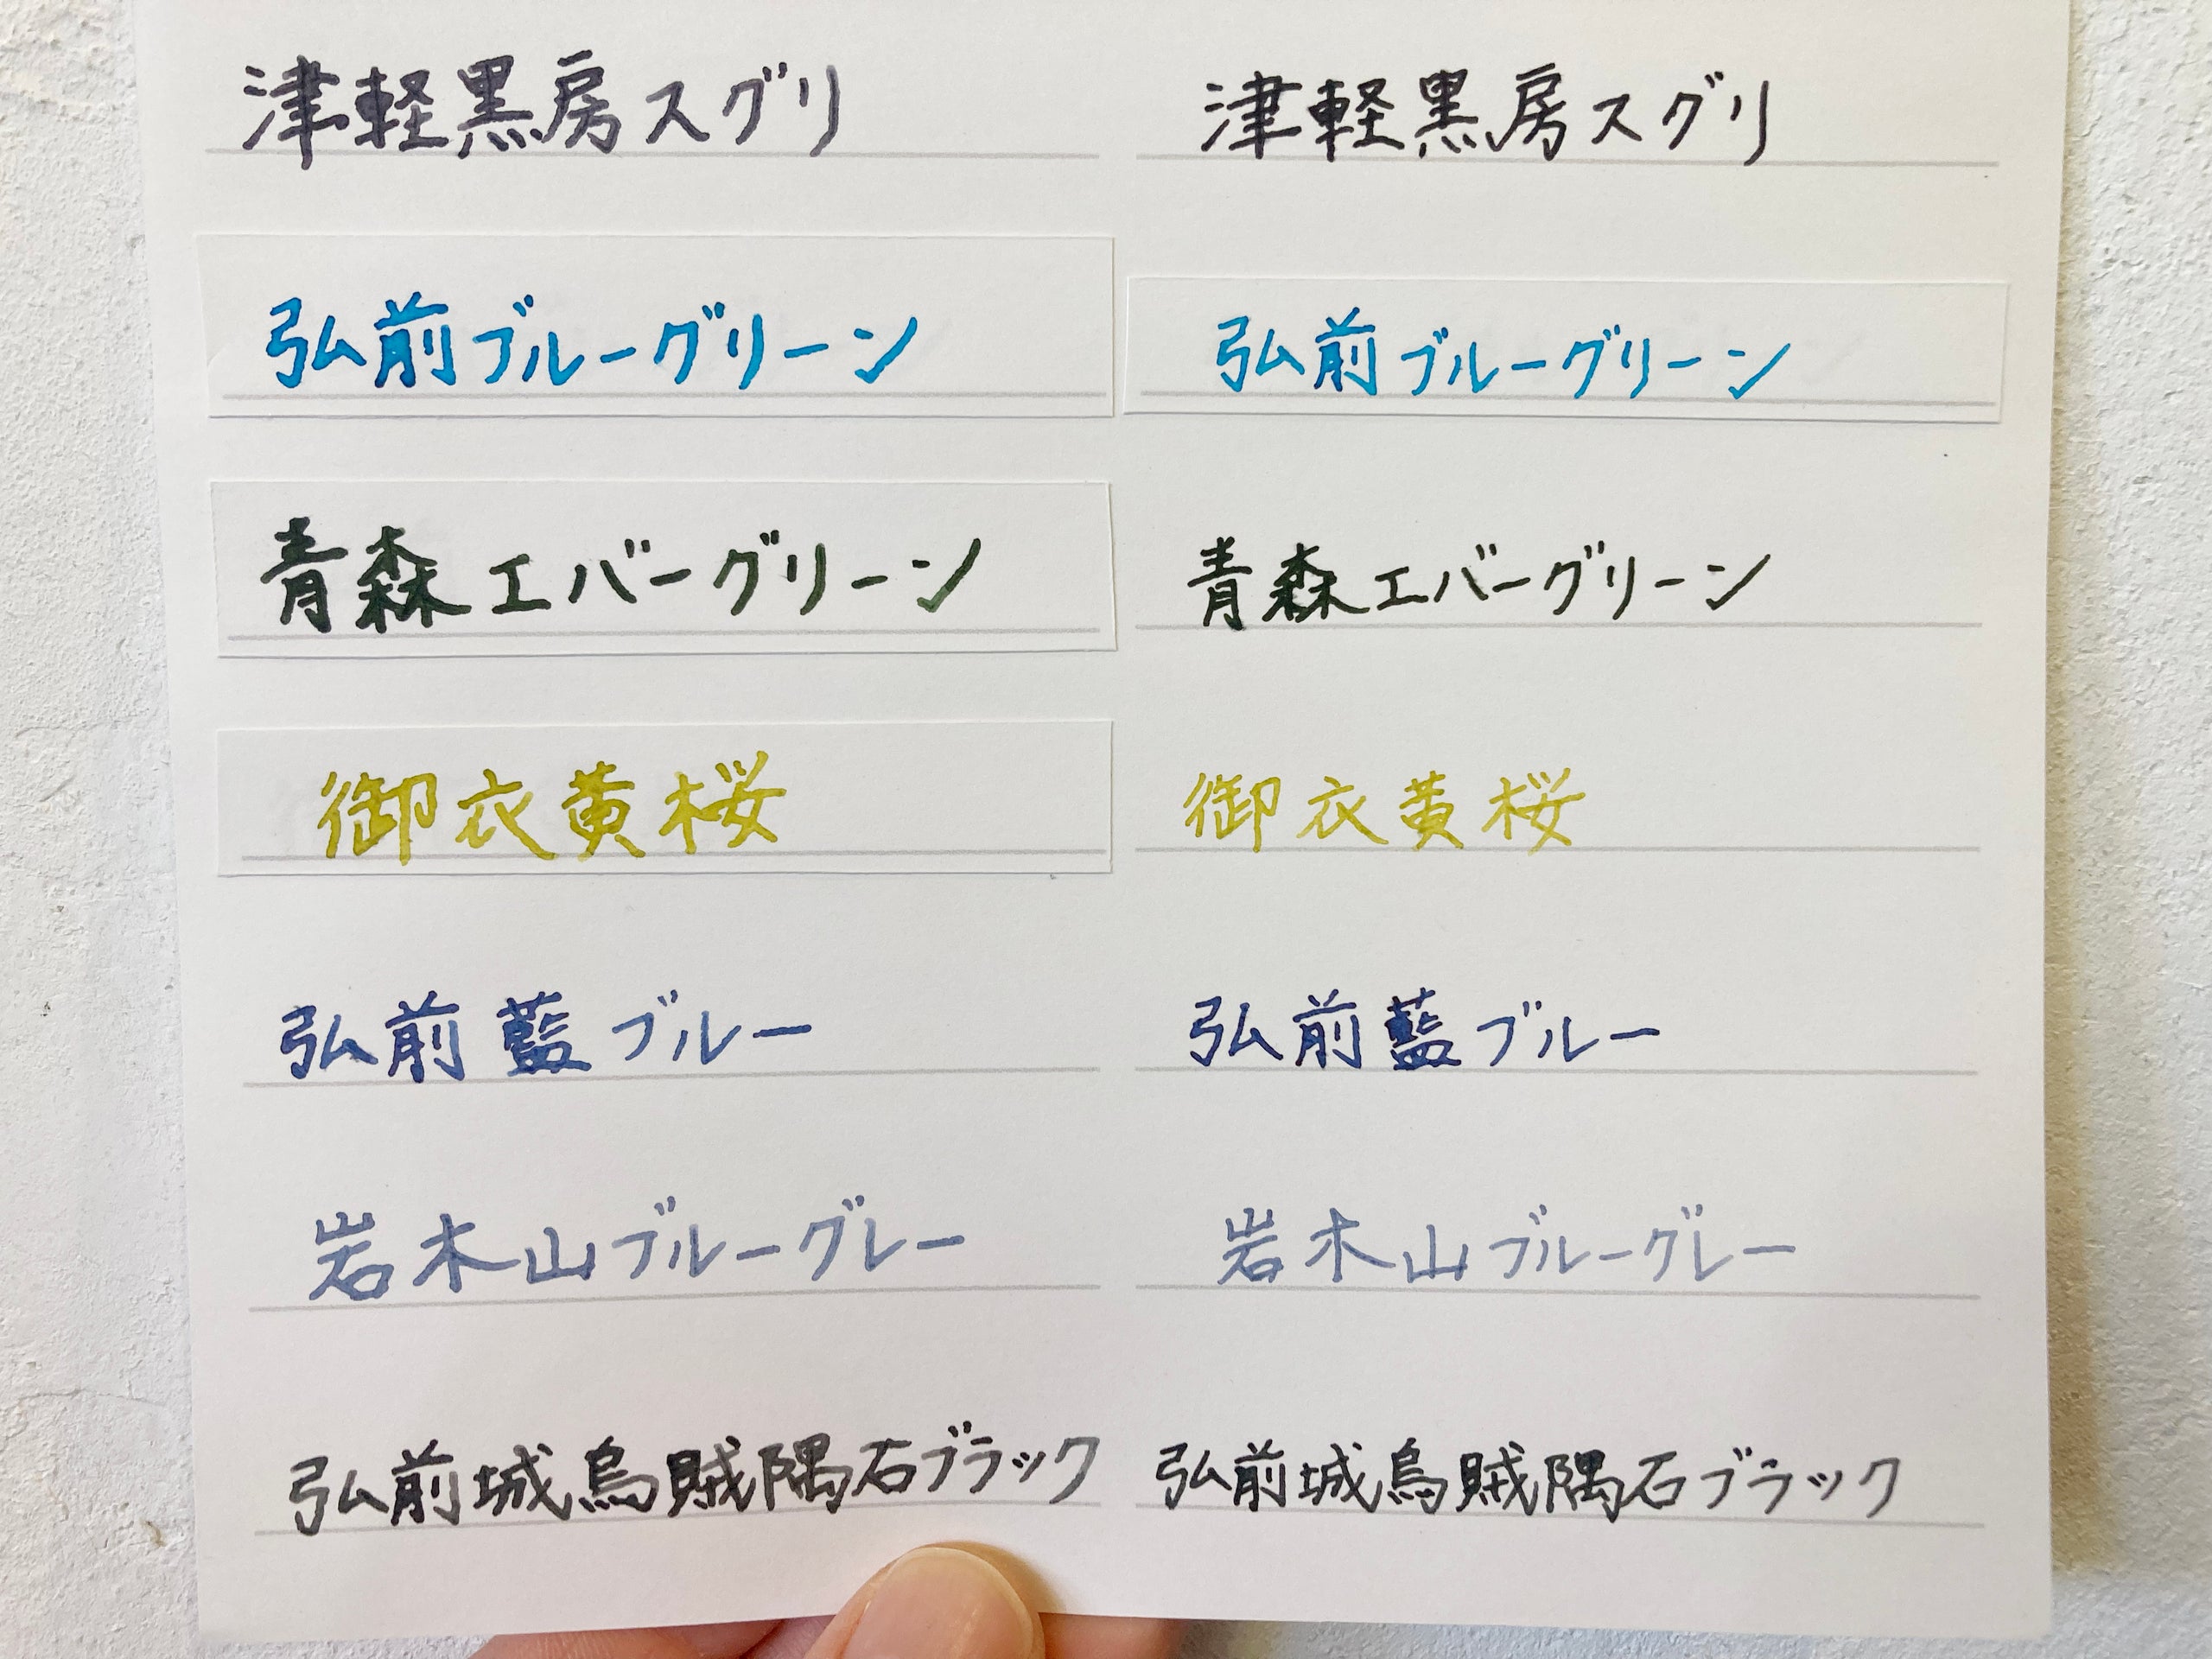 津軽黒房スグリ 津軽黒房スグリ
弘前ブルーグリーン 弘前ブルーグリーン
青森エバーグリーン 青森エバーグリーン
御衣黄桜 御衣黄桜
弘前藍ブルー 弘前藍ブルー
岩木山ブルーグレー 岩木山ブルーグレー
弘前城烏賊隅石ブラック 弘前城烏賊隅石ブラック